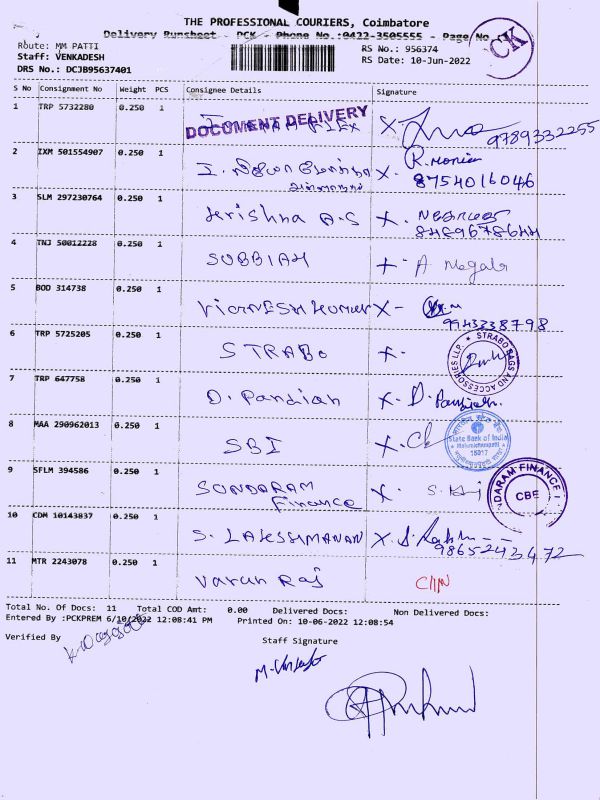 THE PROFESSIONAL COURIERS, Coimbatore
Delivery Runsheet - PCK - Phone No.:0422-3505555 - Page No.
CK
Route: MM PATTI
RS No.: 956374
Staff: VENKADESH
RS Date: 10-Jun-2022
DRS No.: DCJB95637401
S No Consignment No Weight PCS Consignee Details Signature
1 TRP 5732280 0.250 1
DOCUMENT DELIVERY
9789332255
2 IXM 501554907 0.250 1
8754016046
3 SLM 297230764 0.250 1 Krishna A.S
8489678644
4 TNJ 50012228 0.250 1 SUBBIAH
5 BOD 314738 0.250 1 Vignesh Kumar
9943338798
6 TRP 5725205 0.250 1 STRABO
STRABO BAGS AND ACCESSORIES LLP.
7 TRP 647758 0.250 1 D. Pandian
8 MAA 290962013 0.250 1 SBI
State Bank of India
9 SFLM 394586 0.250 1 SUNDARAM
Finance
DARAM FINANCE
CBE
10 CDM 10143837 0.250 1 S. LAKSSHMANAN
9865243472
11 MTR 2243078 0.250 1 Varun Raj
Total No. Of Docs: 11 Total COD Amt: 0.00 Delivered Docs: Non Delivered Docs:
Entered By :PCKPREM 6/10/2022 12:08:41 PM Printed On: 10-06-2022 12:08:54
Verified By Staff Signature